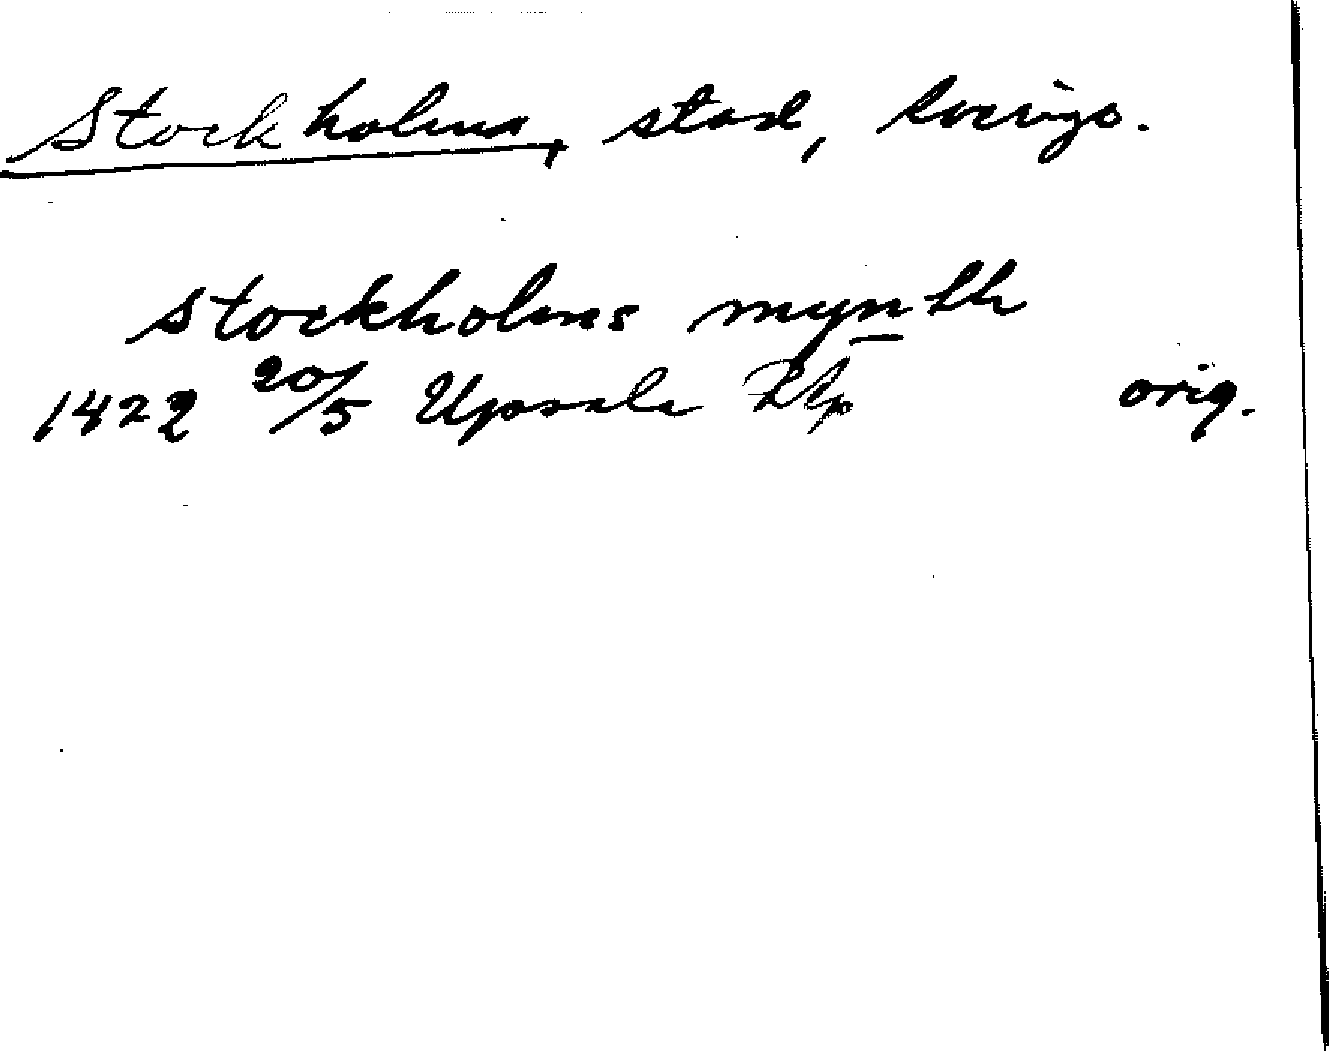 Stockholm, stad, Sverige.
stockholms mynth
1422 20/5 Upsala orig.